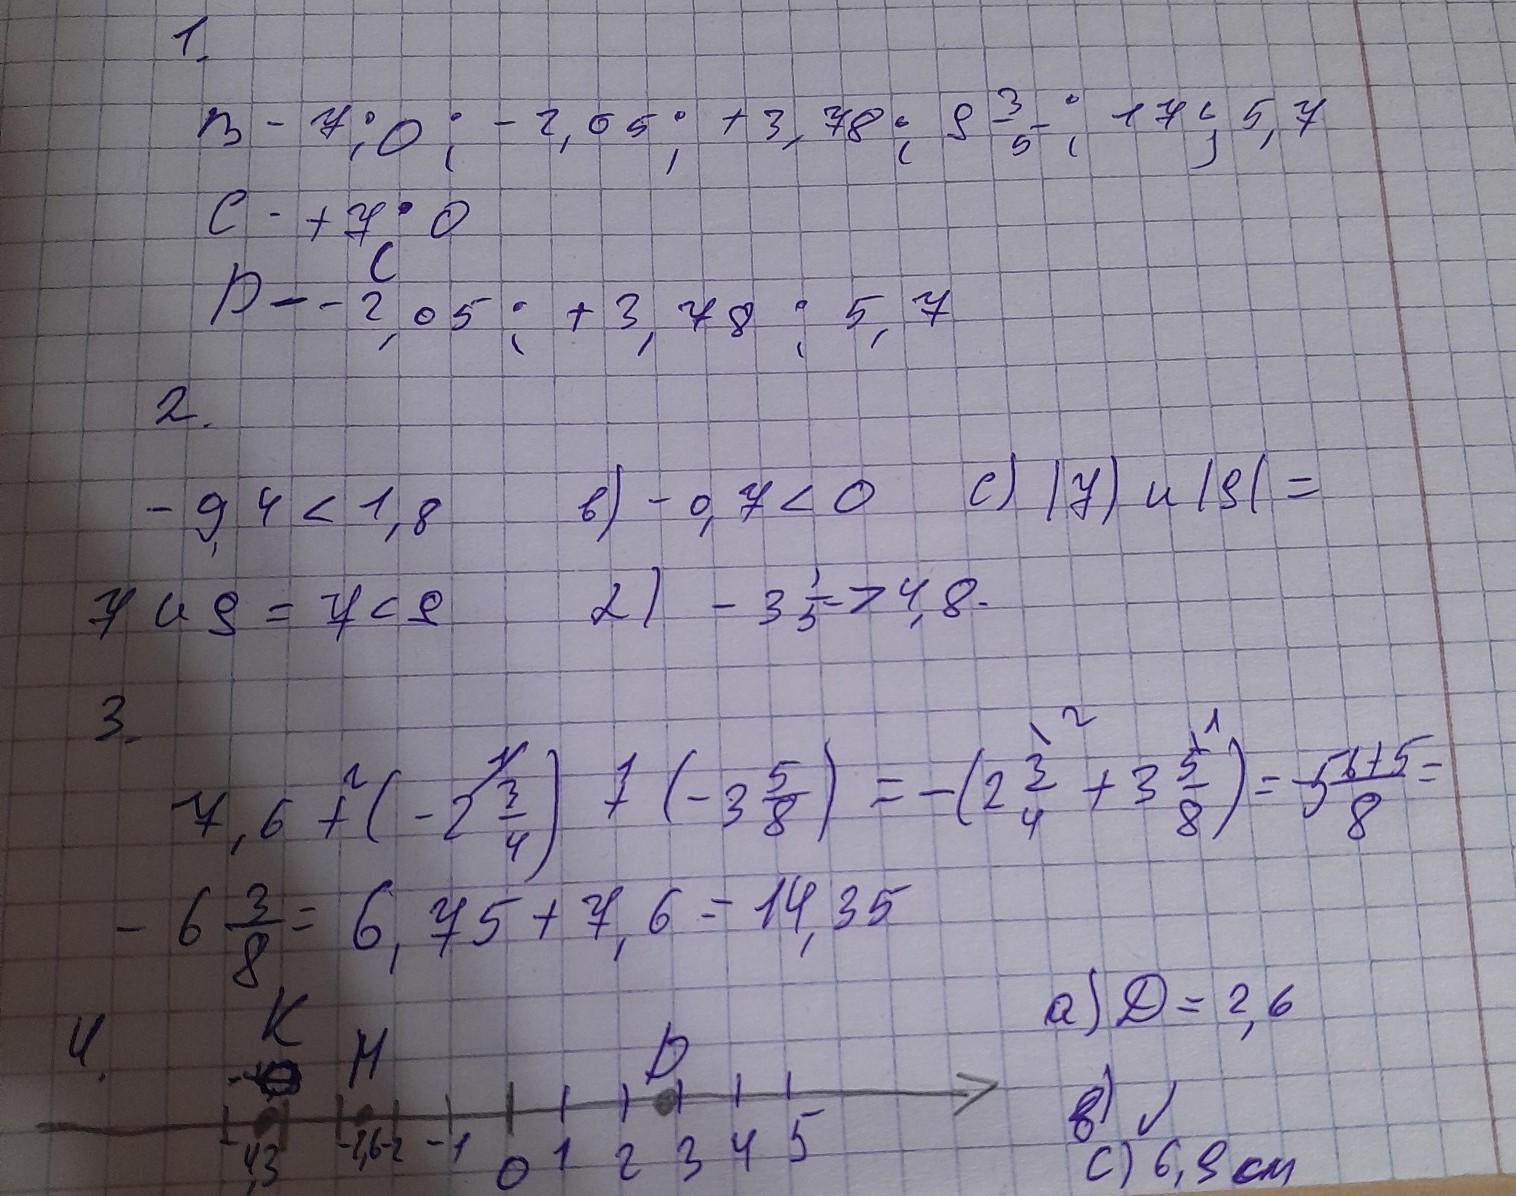 1.
B - 7; 0; - 2,05; + 3,78; 9 3/5; 17; 5,7
C - + 7; 0
D - - 2,05; + 3,78; 5,7
2.
- 9,4 < 1,8 в) - 0,7 < 0 c) |7| и |9| =
7 и 9 = 7 < 9 2) - 3 1/5 > 4,8.
3.
7,6 + (- 2 3/4) + (- 3 5/8) = - (2 3/4 + 3 5/8) = 5 6+5/8 =
- 6 3/8 = 6,75 + 7,6 = 14,35
4. K M D a) D = 2,6
-4,3 -2,6 -2 -1 0 1 2 3 4 5 в) ✓
c) 6,9 см